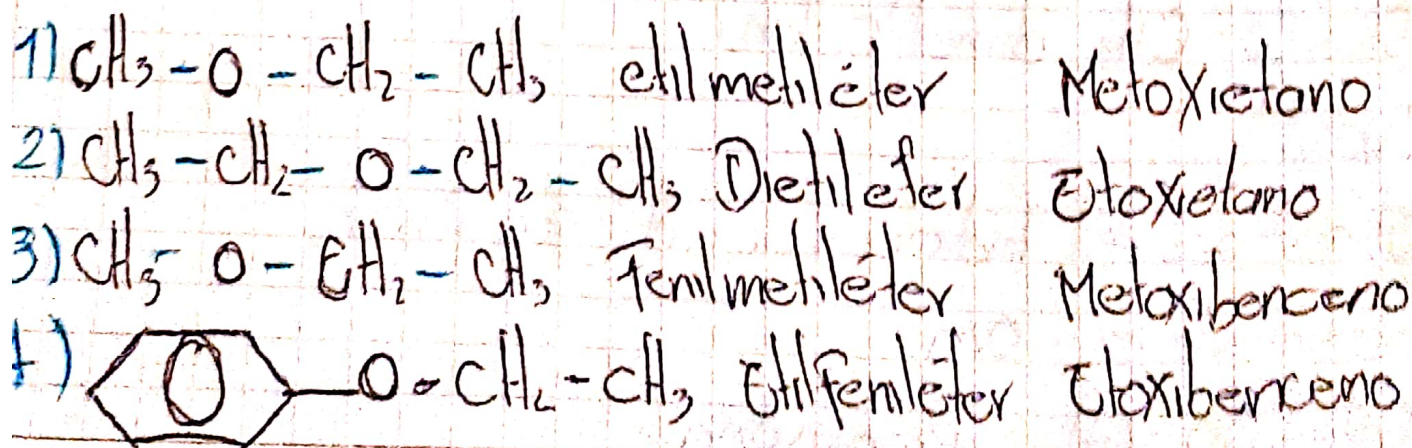 1) CH3 - O - CH2 - CH3 etil metiléter Metoxietano
2) CH3 - CH2 - O - CH2 - CH3 Dietileter Etoxietano
3) CH3 - O - CH2 - CH3 Fenilmetiléter Metoxibenceno
4) O - CH2 - CH3 Etilfeniléter Etoxibenceno